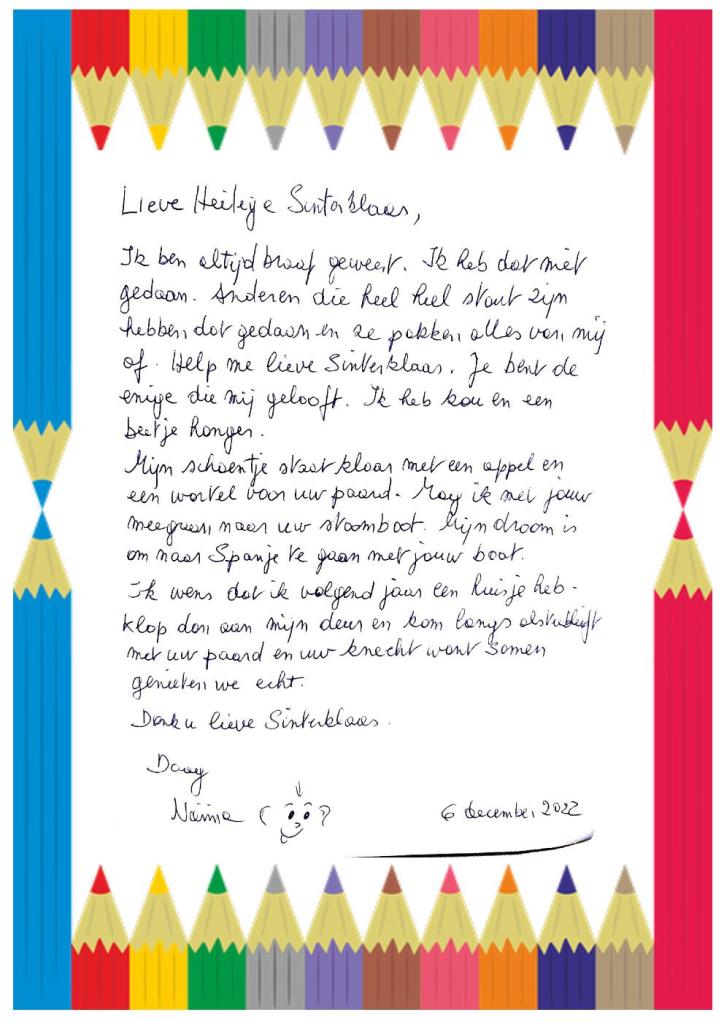 Lieve Heilige Sinterklaas,
Ik ben altijd braaf geweest. Ik heb dat niet
gedaan. Anderen die heel heel stout zijn
hebben dat gedaan en ze pakken alles van mij
af. Help me lieve Sinterklaas. Je bent de
enige die mij gelooft. Ik heb kou en een
beetje honger.
Mijn schoentje staat klaar met een appel en
een wortel voor uw paard. Mag ik met jouw
meegaan naar uw stoomboot. Mijn droom is
om naar Spanje te gaan met jouw boot.
Ik wens dat ik volgend jaar een huisje heb.
Klop dan aan mijn deur en kom langs alstublieft
met uw paard en uw knecht want samen
genieten we echt.
Dank u lieve Sinterklaas.
Daag
Naïma
6 december 2022